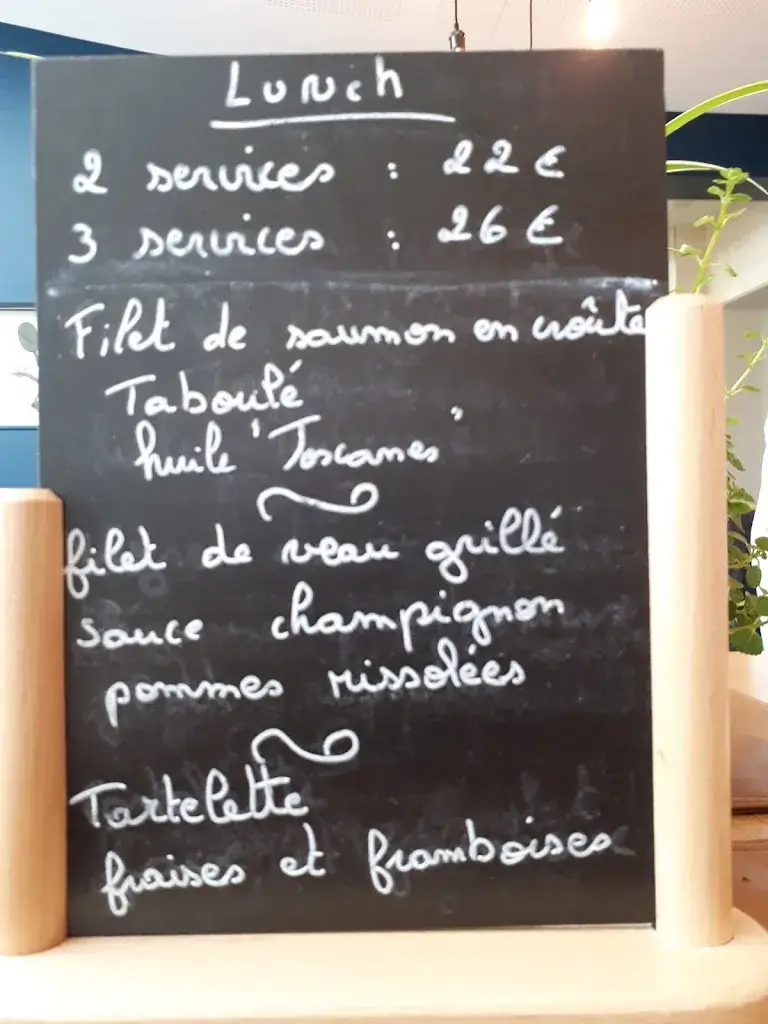 Lunch
2 services : 22 €
3 services : 26 €
Filet de saumon en croûte
Taboulé
huile "Toscanes"
filet de veau grillé
sauce champignon
pommes rissolées
Tartelette
fraises et framboises